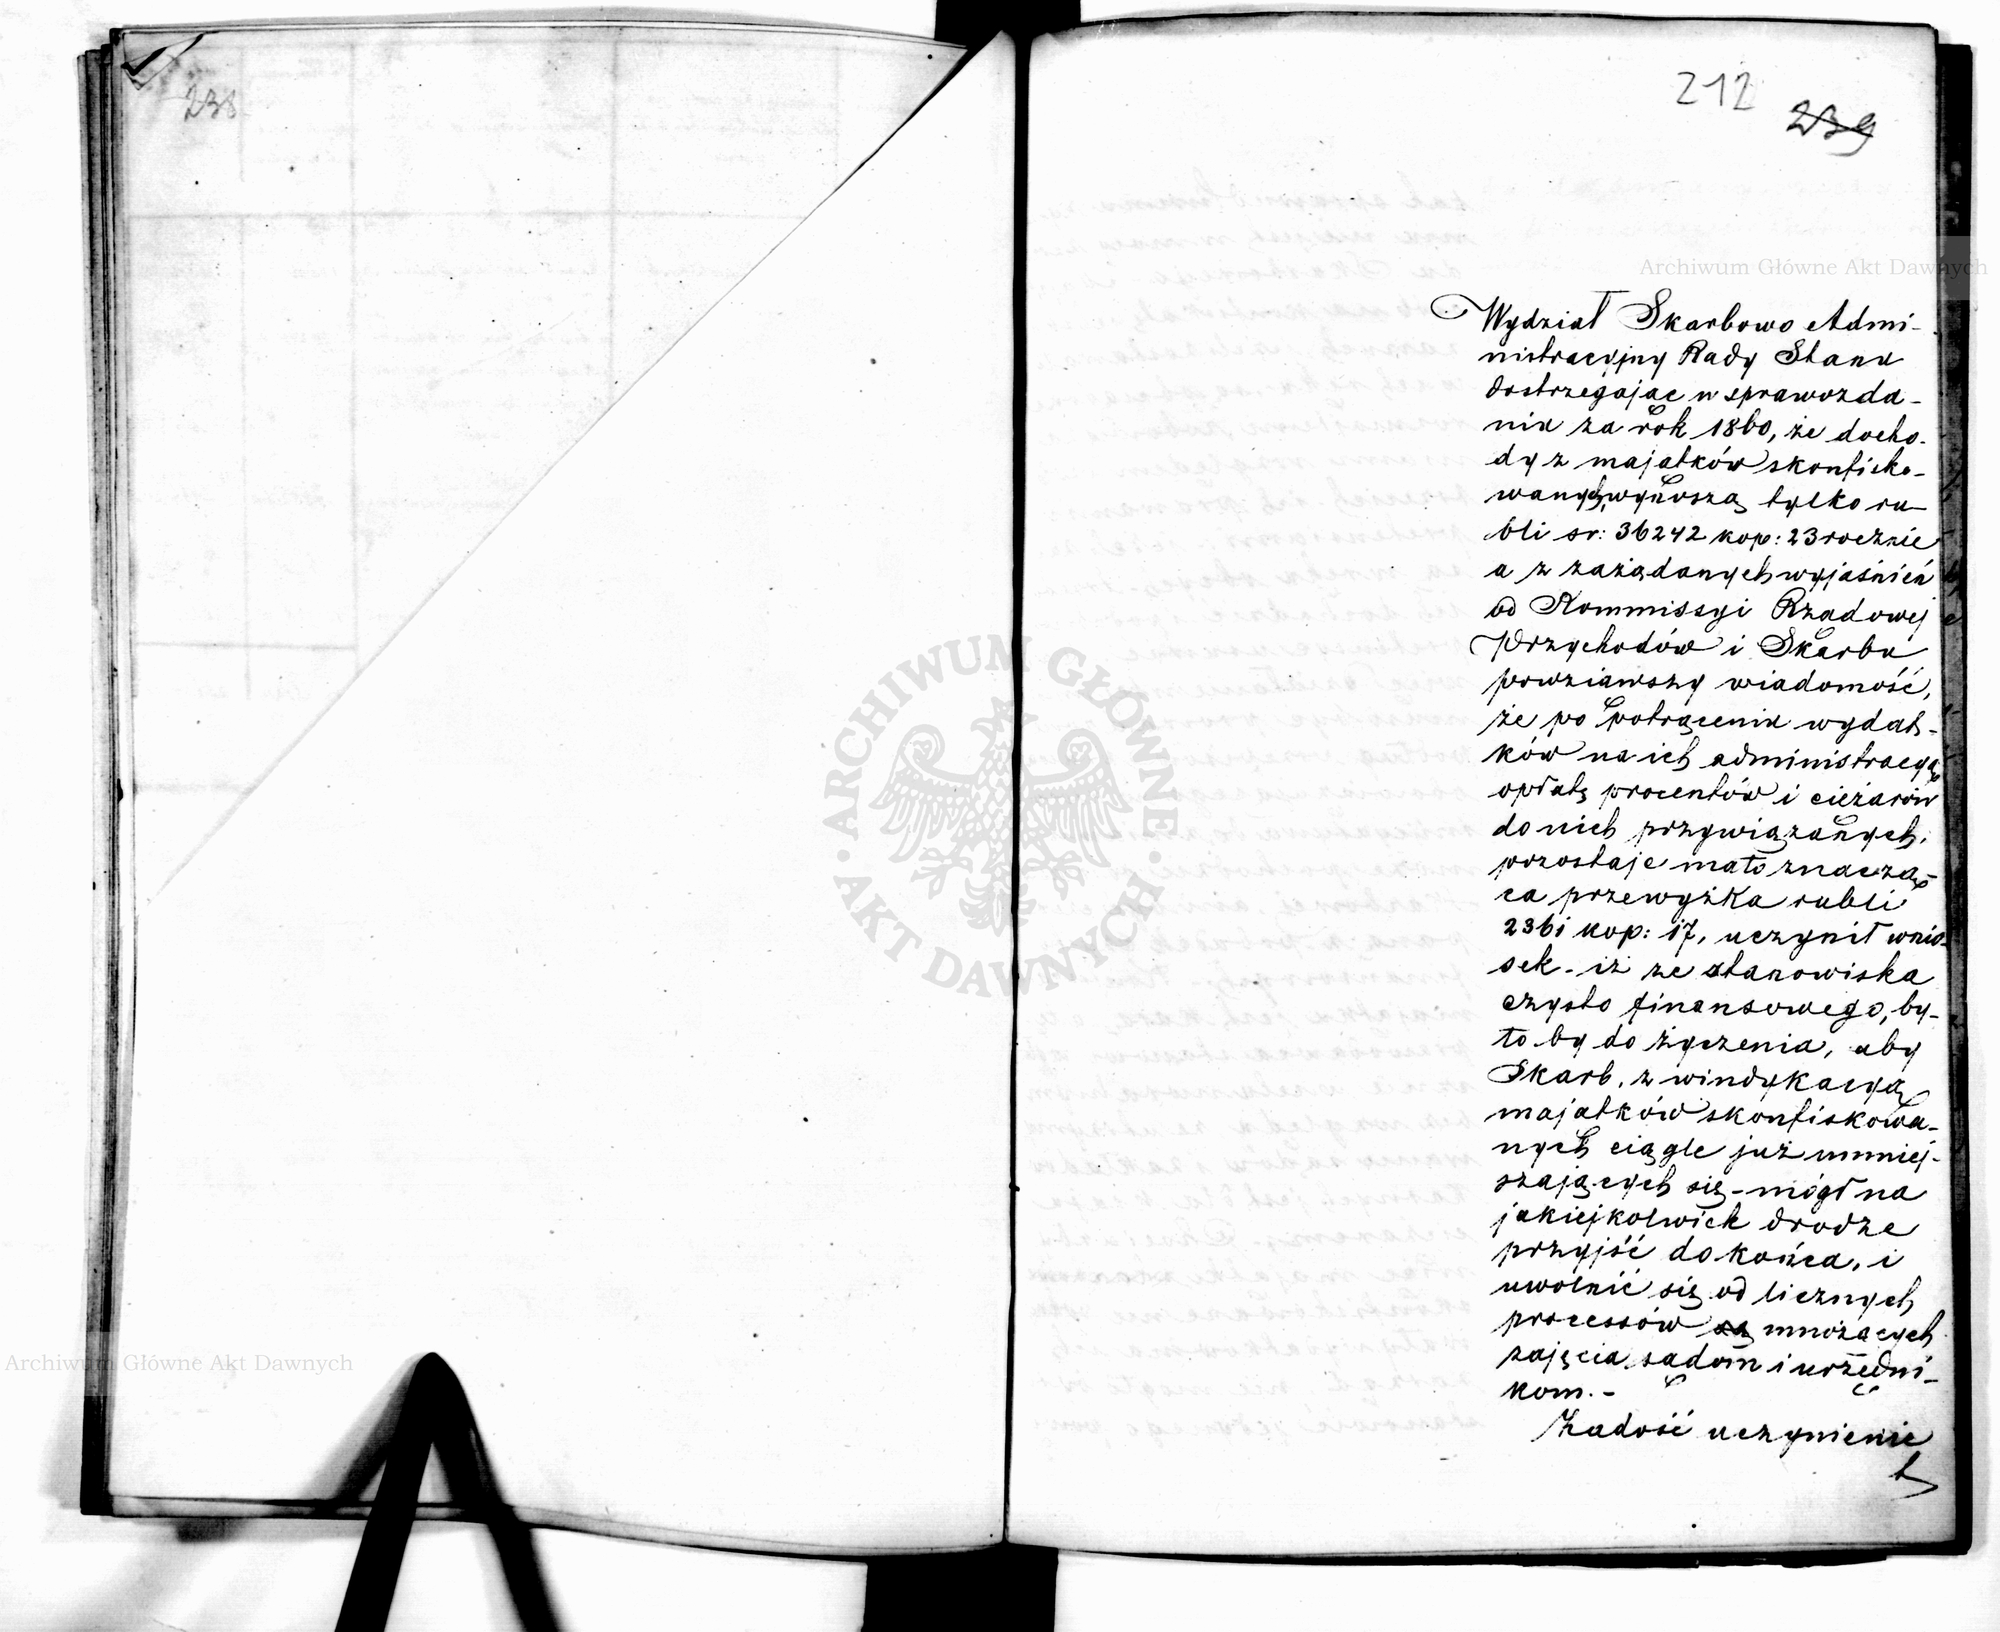 238
212
239
Archiwum Główne Akt Dawnych
Wydział Skarbowo Admi-
nistracyjny Rady Stanu
dostrzegając w sprawozda-
niu za rok 1860, że docho-
dy z majątków skonfisko-
wanych, wynoszą tylko ru-
bli sr: 36242 kop: 23 rocznie
a z zażądanych wyjaśnień
od Kommissyi Rządowej
Przychodów i Skarbu
powziąwszy wiadomość,
że po potrąceniu wydat-
ków na ich administracyą
opłatę procentów i ciężarów
do nich przywiązanych,
pozostaje mało znaczą-
ca przewyżka rubli
2361 kop: 17, uczynił wnio-
sek - iż ze stanowiska
czysto finansowego, by-
ło by do życzenia, aby
Skarb, z windykacyą
majątków skonfiskowa-
nych ciągle już umniej-
szających się - mógł na
jakiejkolwiek drodze
przyjść do końca, i
uwolnić się od licznych
processów są mnożących
zajęcia sądom i urzędni-
kom. -
Zadość uczynienie
ARCHIWUM GŁÓWNE
AKT DAWNYCH
Archiwum Główne Akt Dawnych